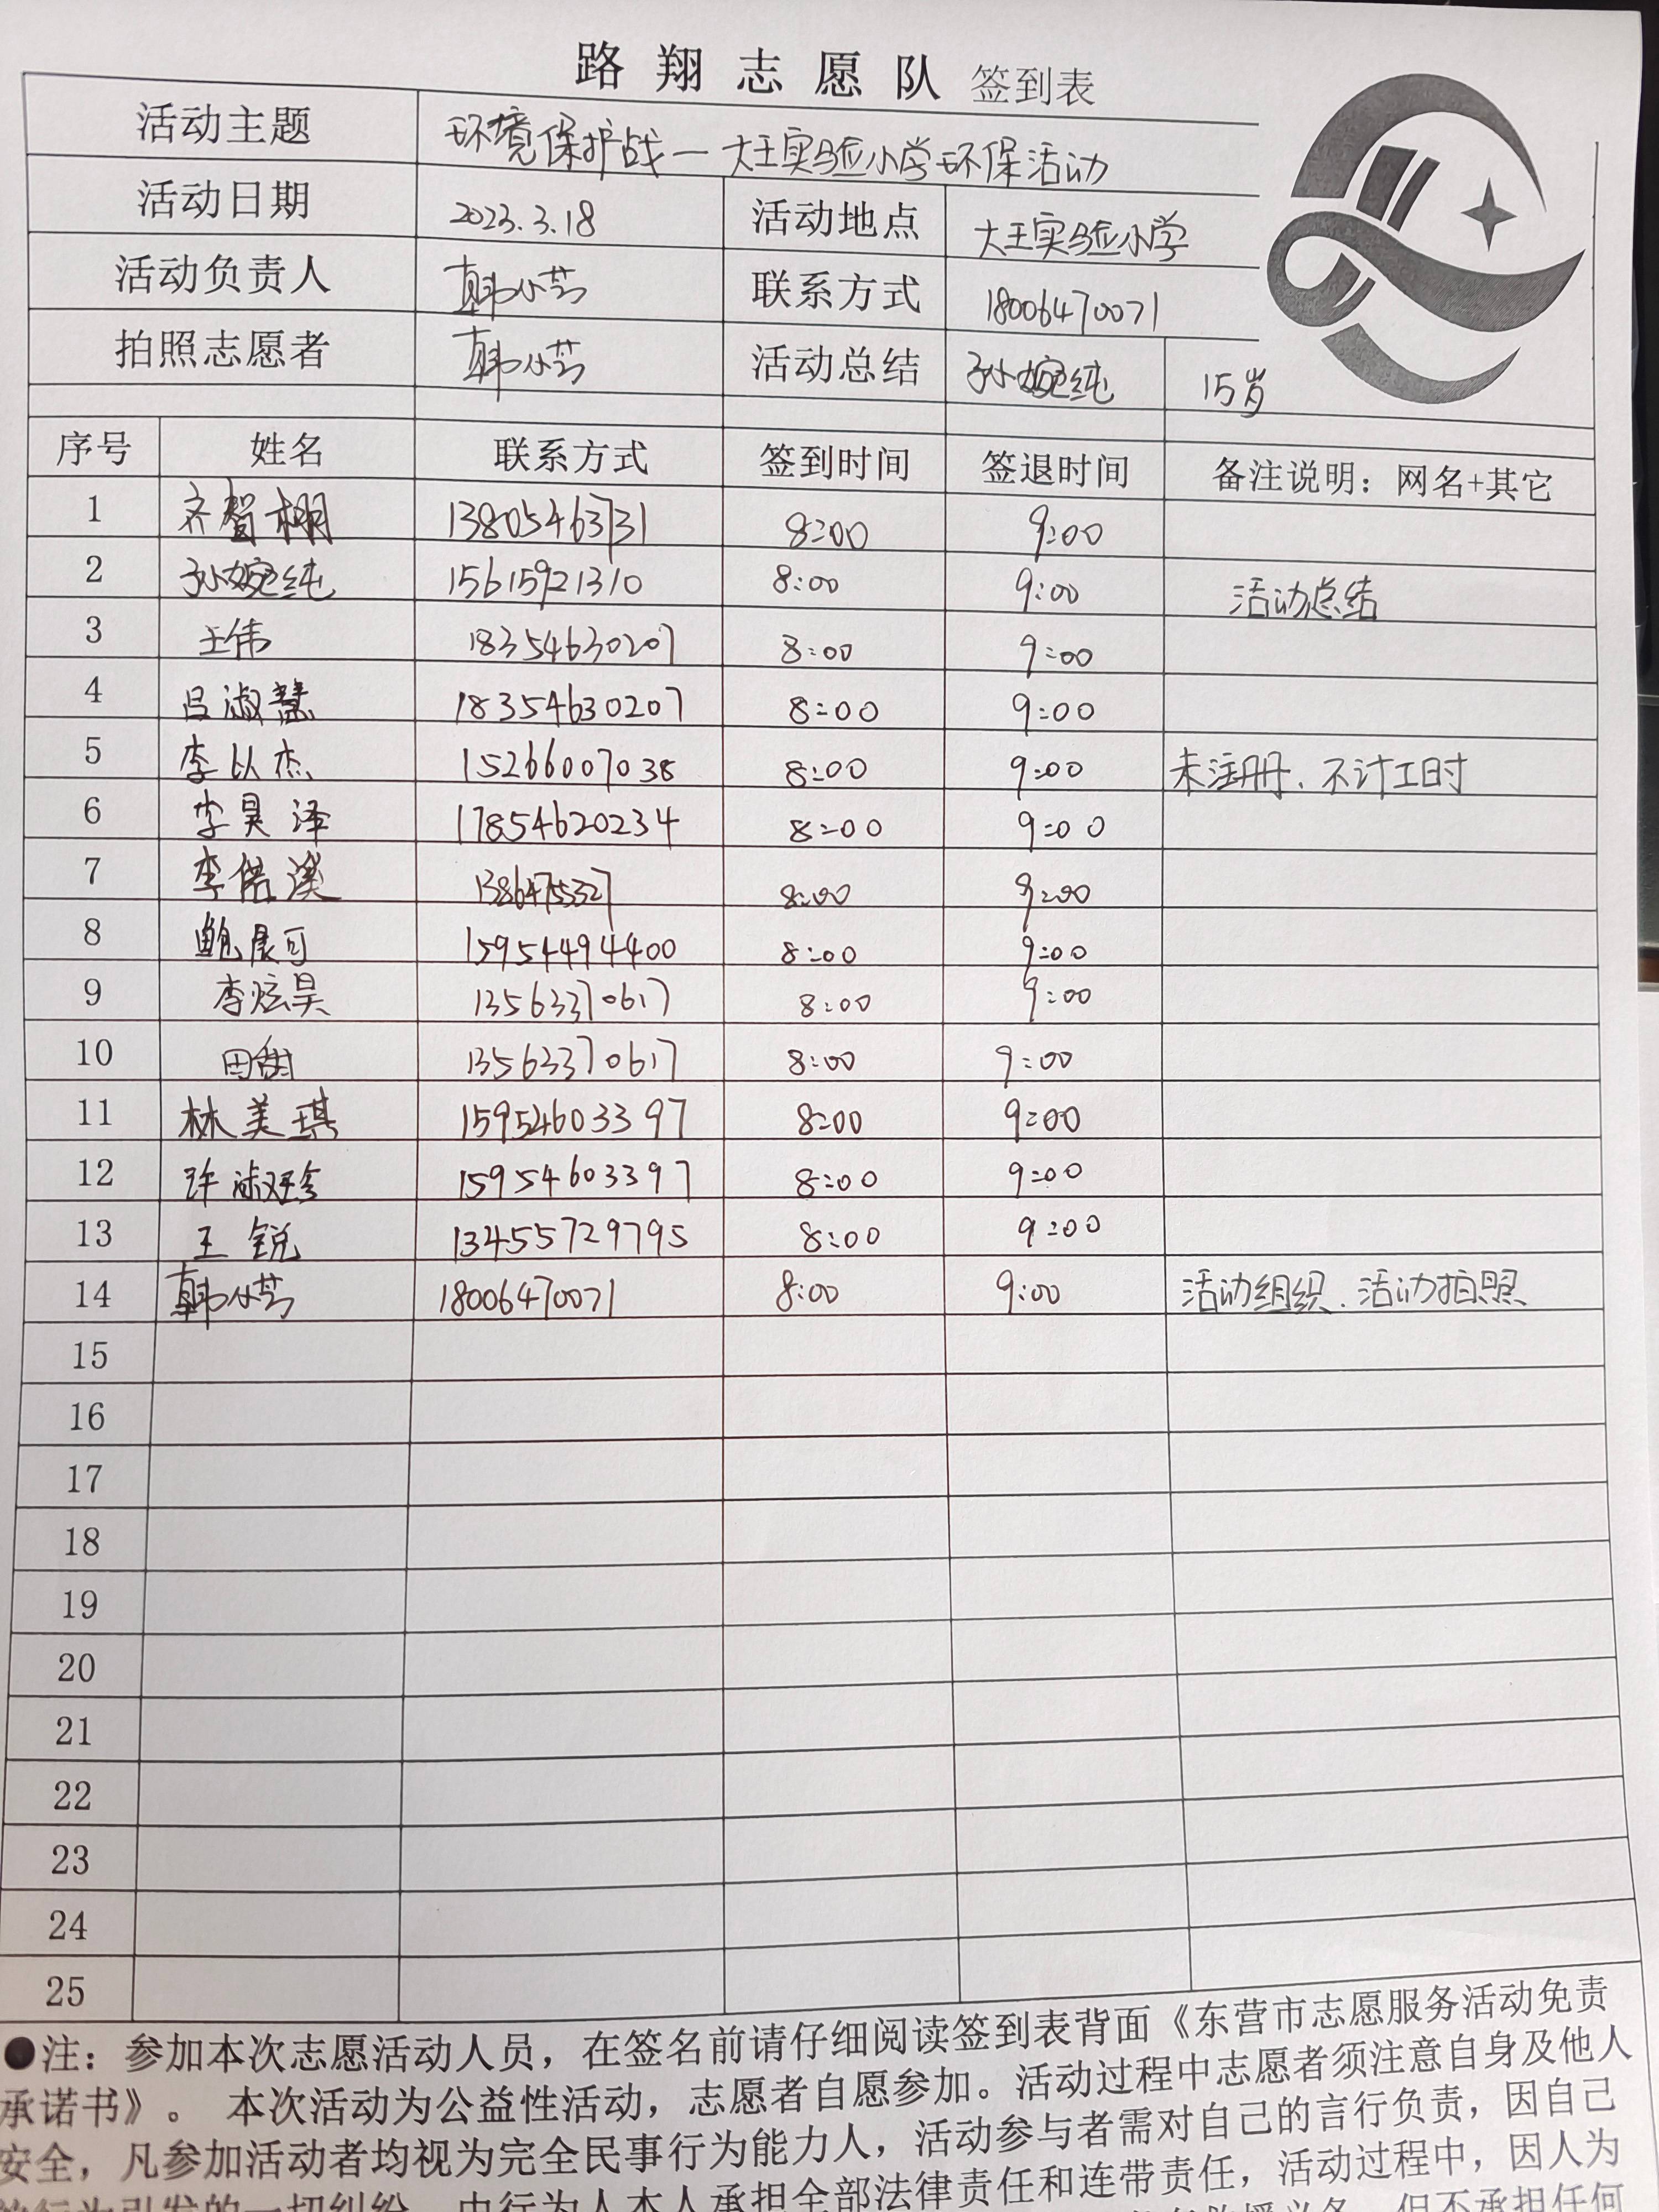 路翔志愿队 签到表
活动主题 环境保护战一大王实验小学环保活动
活动日期 2023.3.18 活动地点 大王实验小学
活动负责人 韩小芸 联系方式 18006470071
拍照志愿者 韩小芸 活动总结 孙婉纯 15岁
序号 姓名 联系方式 签到时间 签退时间 备注说明：网名+其它
1 齐智栩 13805463731 8:00 9:00
2 孙婉纯 15615921310 8:00 9:00 活动总结
3 王伟 18354630207 8:00 9:00
4 吕淑慧 18354630207 8:00 9:00
5 李以杰 15266007038 8:00 9:00 未注册、不计工时
6 李昊泽 17854620234 8:00 9:00
7 李偌溪 8:00 9:00
8 鲍晨可 15954494400 8:00 9:00
9 李炫昊 13563370617 8:00 9:00
10 田甜 13563370617 8:00 9:00
11 林美琪 15954603397 8:00 9:00
12 许淑珍 15954603397 8:00 9:00
13 王锐 13455729795 8:00 9:00
14 韩小芸 18006470071 8:00 9:00 活动组织、活动拍照
15
16
17
18
19
20
21
22
23
24
25
●注：参加本次志愿活动人员，在签名前请仔细阅读签到表背面《东营市志愿服务活动免责
承诺书》。 本次活动为公益性活动，志愿者自愿参加。活动过程中志愿者须注意自身及他人
安全，凡参加活动者均视为完全民事行为能力人，活动参与者需对自己的言行负责，因自己
的行为引发的一切纠纷，由行为人本人承担全部法律责任和连带责任，活动过程中，因人为
救援义务，但不承担任何